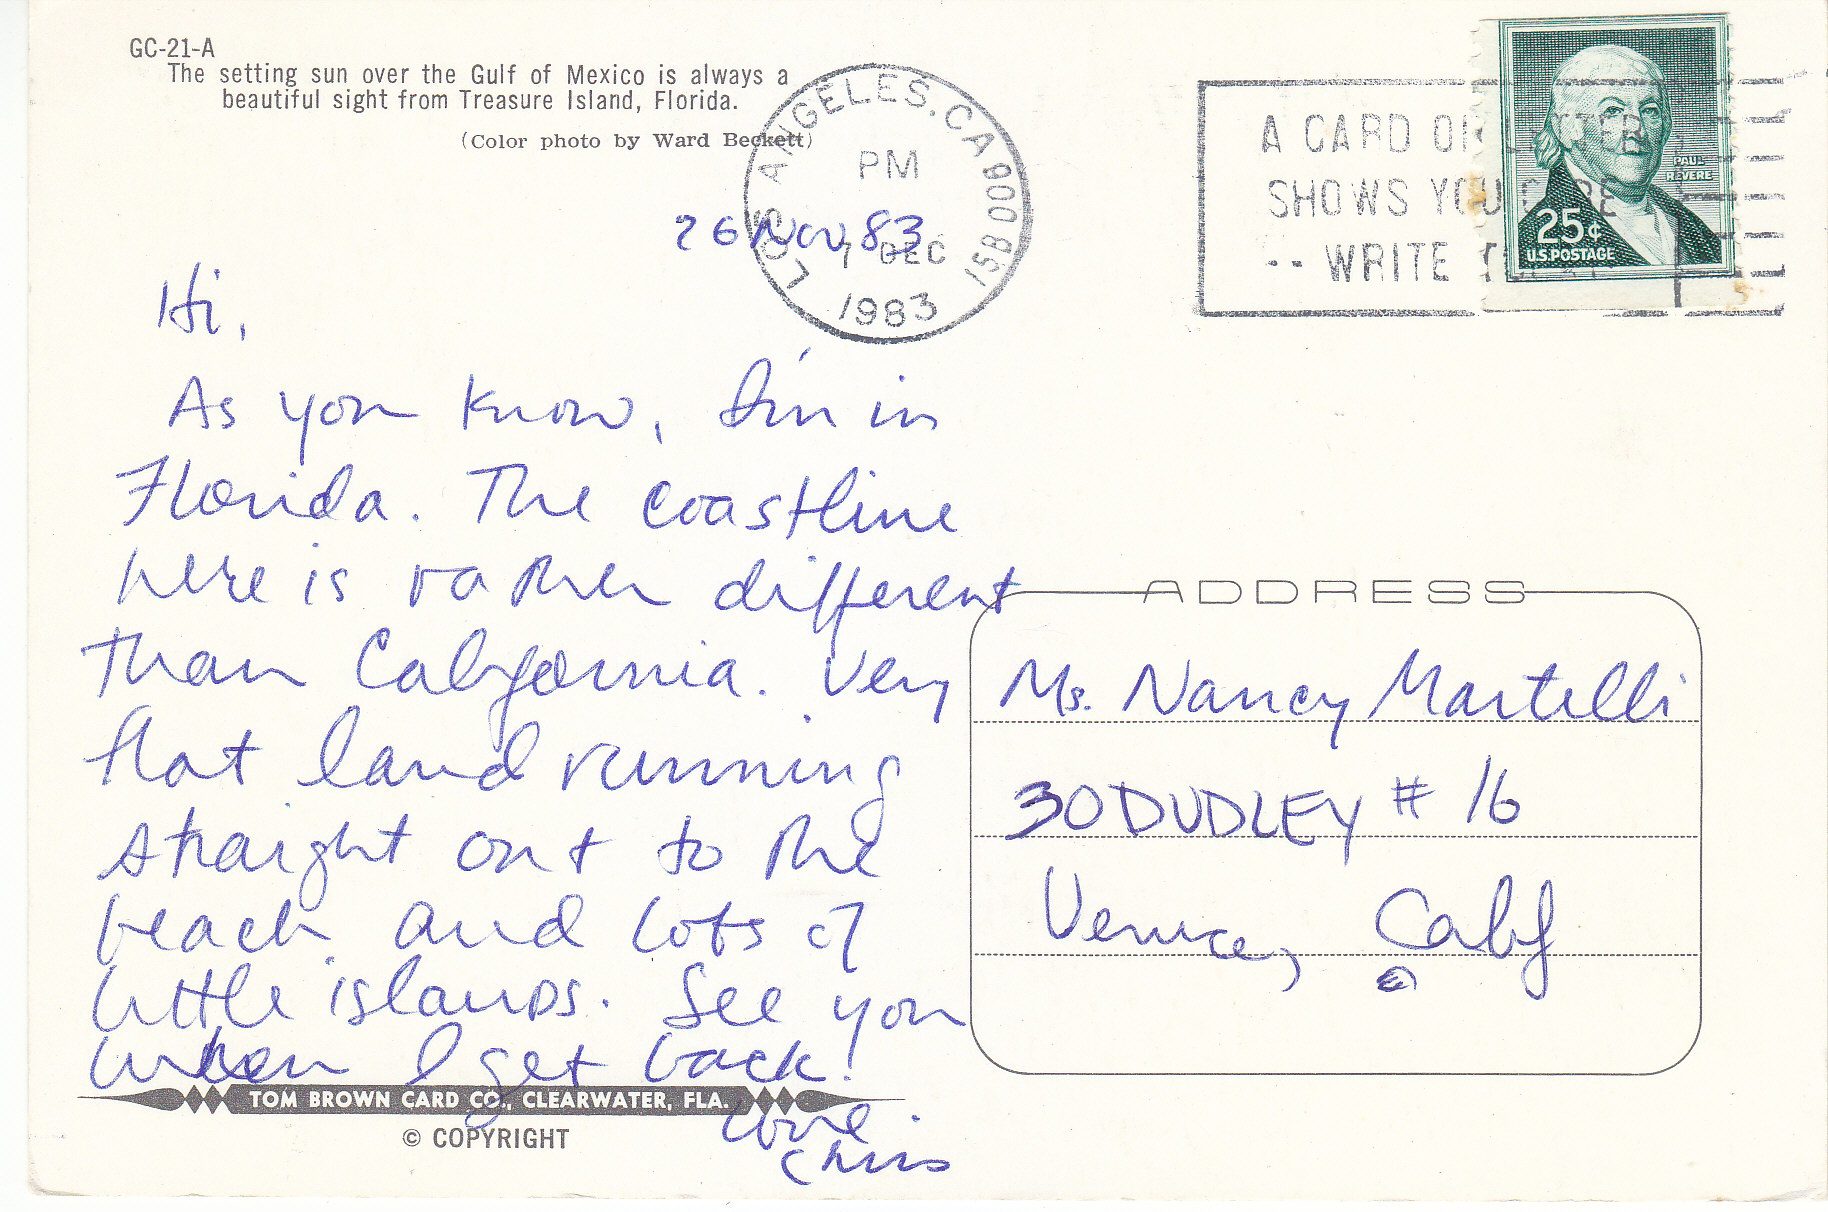 GC-21-A
The setting sun over the Gulf of Mexico is always a
beautiful sight from Treasure Island, Florida.
(Color photo by Ward Beckett)
LOS ANGELES, CA 900
PM
7 DEC
1983
15B
A CARD OR LETTER
SHOWS YOU CARE
-- WRITE
PAUL
REVERE
25¢
U.S. POSTAGE
26 Nov 83
Hi,
As you know, I'm in
Florida. The coastline
here is rather different
than California. Very
flat land running
straight out to the
beach and lots of
little islands. See you
when I get back!
Love
Chris
ADDRESS
Ms. Nancy Martelli
30 DUDLEY # 16
Venice, Calif
TOM BROWN CARD CO., CLEARWATER, FLA.
© COPYRIGHT